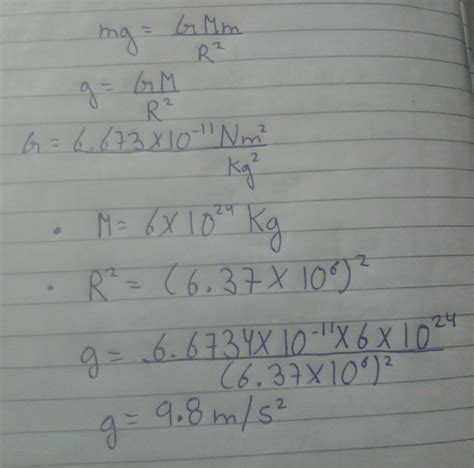 mg = GMm / R²
g = GM / R²
G = 6.673 × 10⁻¹¹ Nm² / Kg²
• M = 6 × 10²⁴ Kg
• R² = (6.37 × 10⁶)²
g = 6.6734 × 10⁻¹¹ × 6 × 10²⁴ / (6.37 × 10⁶)²
g = 9.8 m/s²